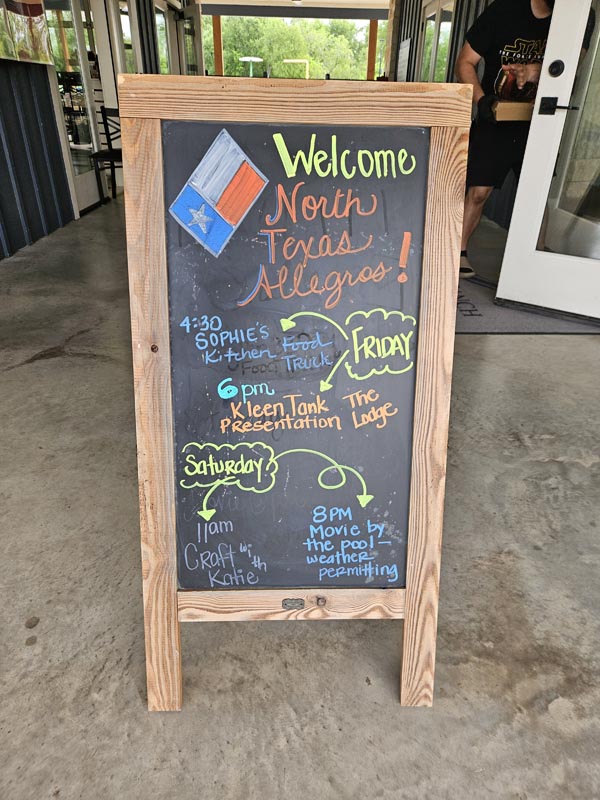 Welcome
North
Texas
Allegros!
4:30
SOPHIE'S
Kitchen Food
Truck
FRIDAY
6pm
Kleen Tank The
Presentation Lodge
Saturday
11am
Craft with
Katie
8PM
Movie by
the pool-
weather
permitting
STAR